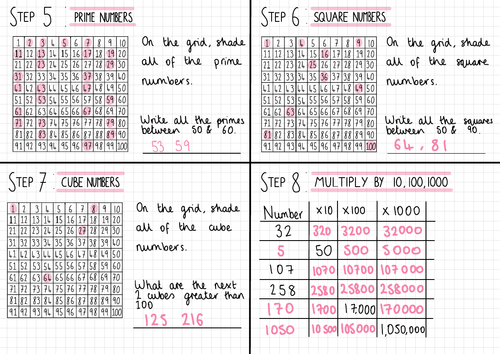 STEP 5 PRIME NUMBERS
1 2 3 4 5 6 7 8 9 10
11 12 13 14 15 16 17 18 19 20
21 22 23 24 25 26 27 28 29 30
31 32 33 34 35 36 37 38 39 40
41 42 43 44 45 46 47 48 49 50
51 52 53 54 55 56 57 58 59 60
61 62 63 64 65 66 67 68 69 70
71 72 73 74 75 76 77 78 79 80
81 82 83 84 85 86 87 88 89 90
91 92 93 94 95 96 97 98 99 100
On the grid, shade
all of the prime
numbers.
Write all the primes
between 50 & 60.
53 59
STEP 6 SQUARE NUMBERS
1 2 3 4 5 6 7 8 9 10
11 12 13 14 15 16 17 18 19 20
21 22 23 24 25 26 27 28 29 30
31 32 33 34 35 36 37 38 39 40
41 42 43 44 45 46 47 48 49 50
51 52 53 54 55 56 57 58 59 60
61 62 63 64 65 66 67 68 69 70
71 72 73 74 75 76 77 78 79 80
81 82 83 84 85 86 87 88 89 90
91 92 93 94 95 96 97 98 99 100
On the grid, shade
all of the square
numbers.
Write all the squares
between 50 & 90.
64, 81
STEP 7 CUBE NUMBERS
1 2 3 4 5 6 7 8 9 10
11 12 13 14 15 16 17 18 19 20
21 22 23 24 25 26 27 28 29 30
31 32 33 34 35 36 37 38 39 40
41 42 43 44 45 46 47 48 49 50
51 52 53 54 55 56 57 58 59 60
61 62 63 64 65 66 67 68 69 70
71 72 73 74 75 76 77 78 79 80
81 82 83 84 85 86 87 88 89 90
91 92 93 94 95 96 97 98 99 100
On the grid, shade
all of the cube
numbers.
What are the next
2 cubes greater than
100
125 216
STEP 8 MULTIPLY BY 10,100,1000
Number x10 x100 x1000
32 320 3200 32000
5 50 500 5000
107 1070 10700 107000
258 2580 25800 258000
170 1700 17,000 170000
1050 10500 105000 1,050,000